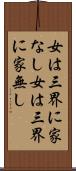 女は三界に家
なし女は三界
に家無し